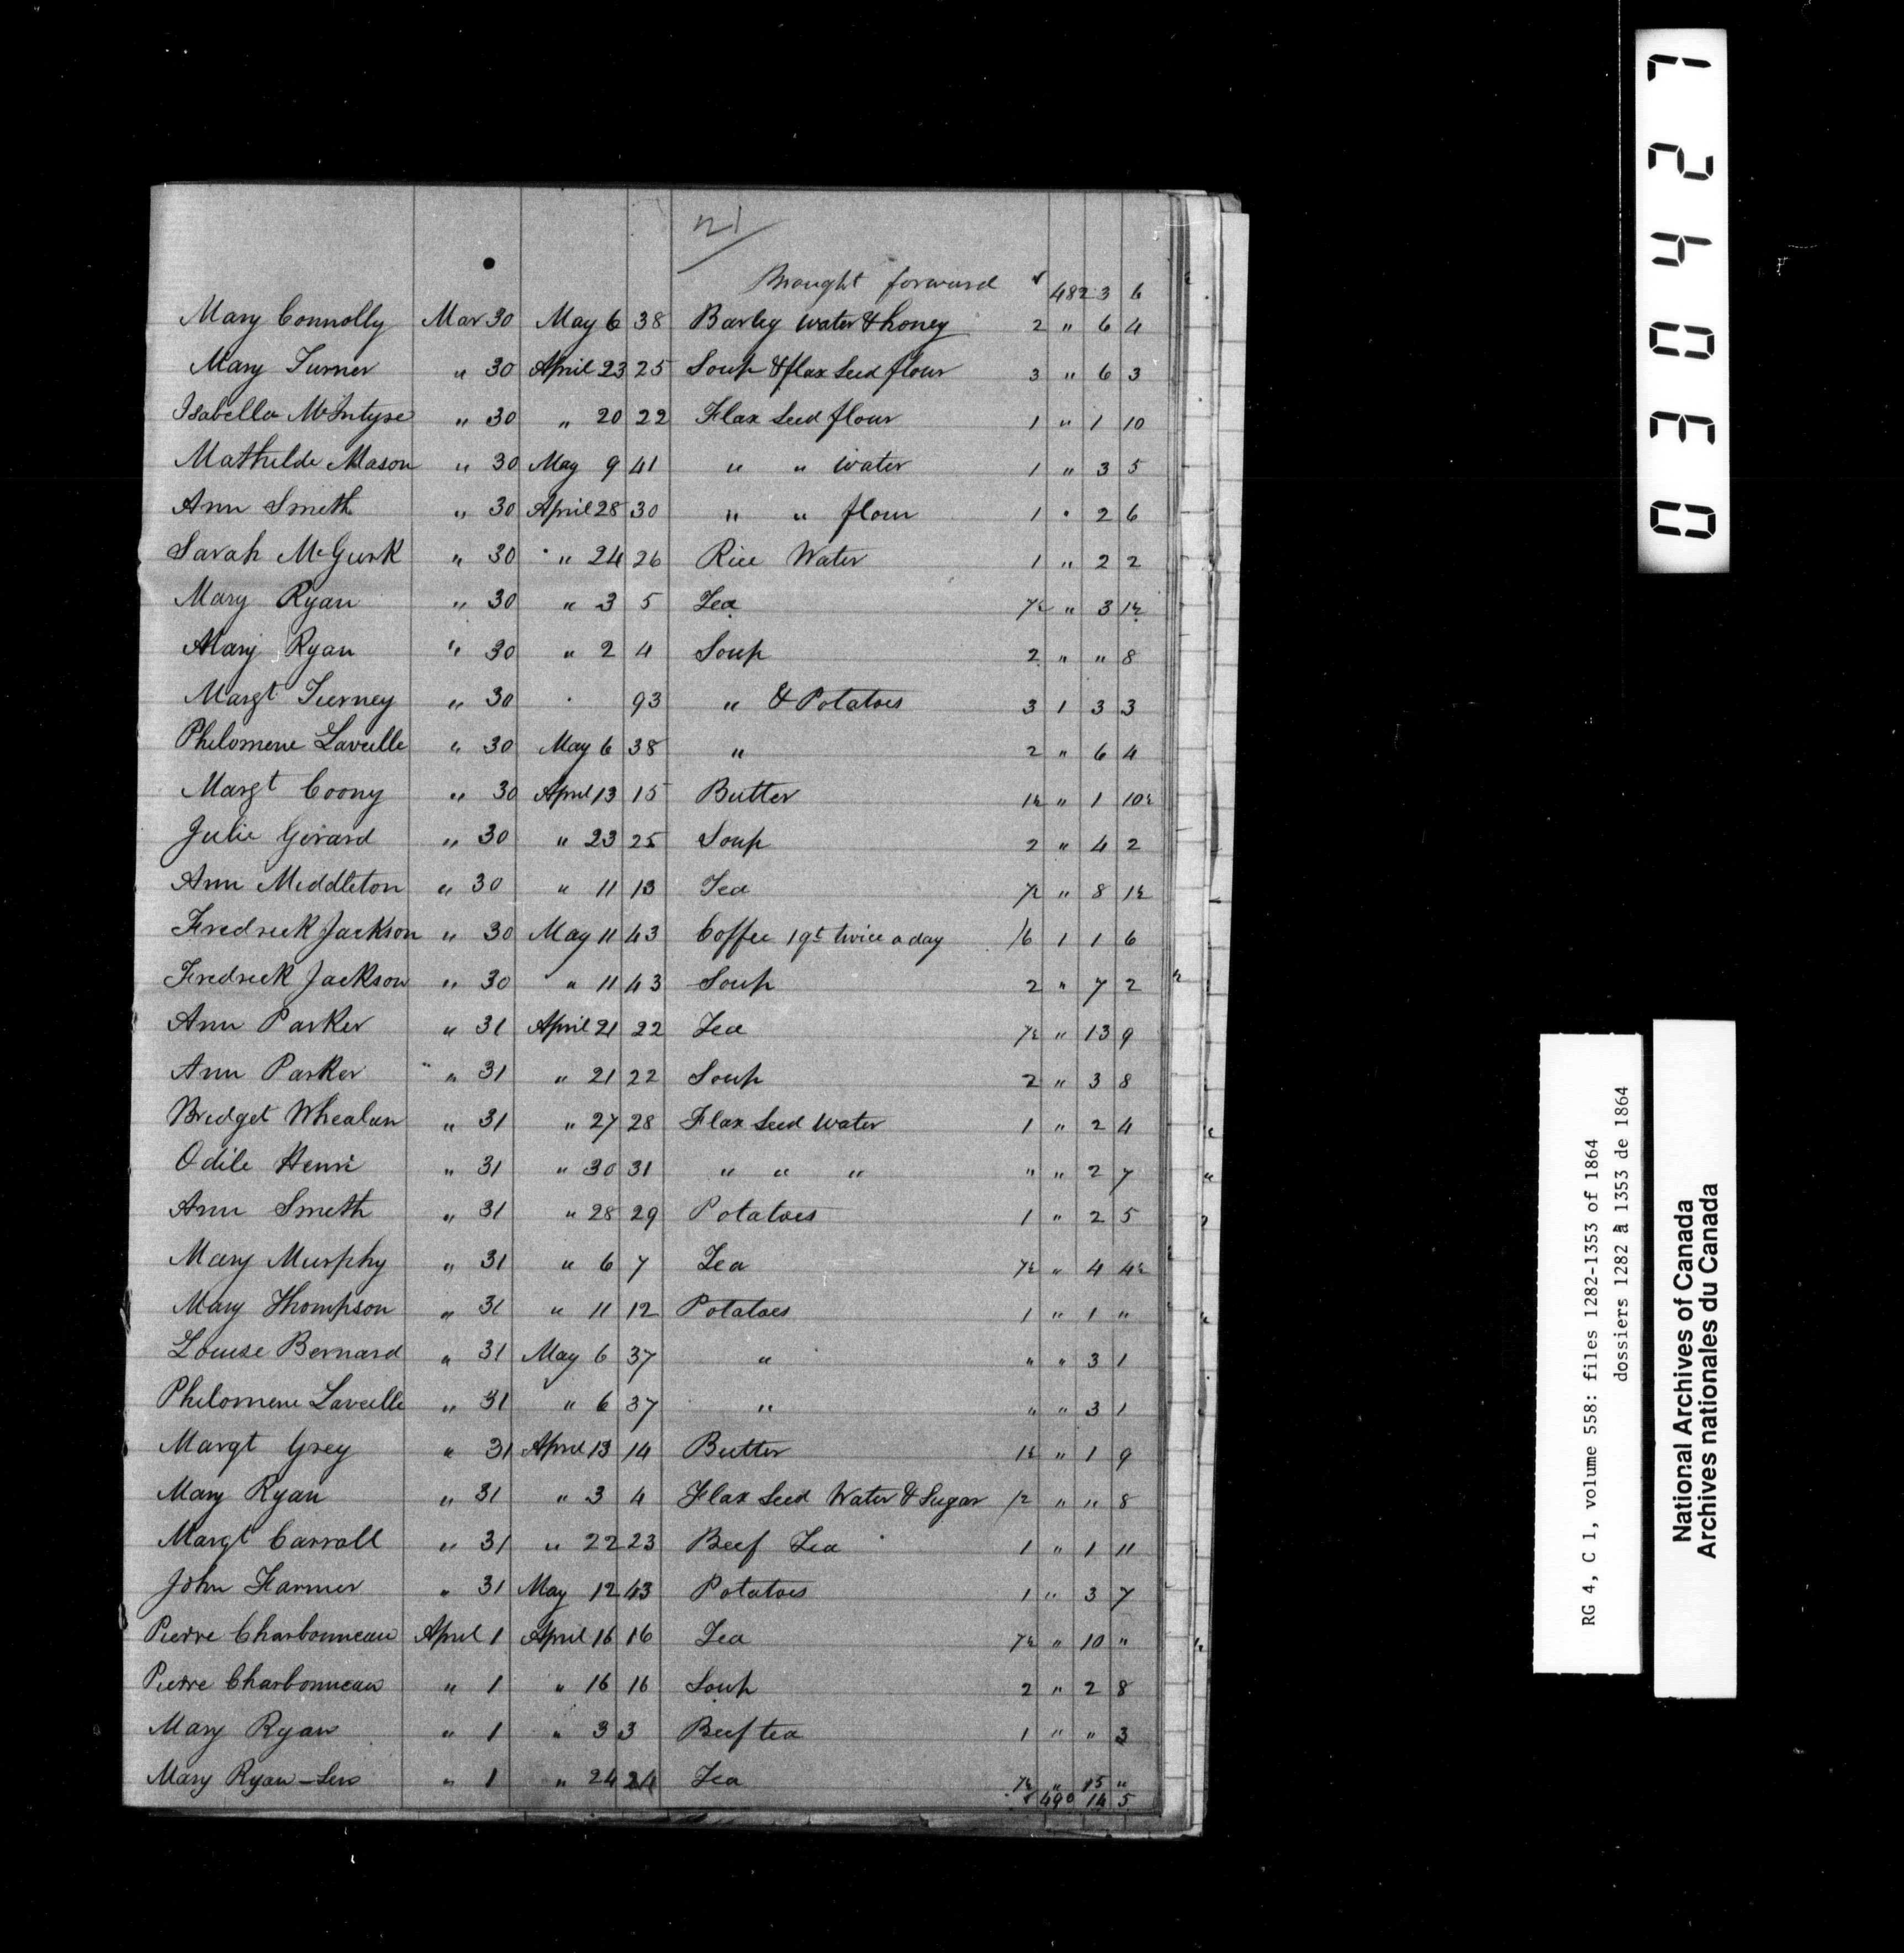 21
Brought forward 482 3 6
Mary Connolly Mar 30 May 6 38 Barley water & honey 2 " 6 4
Mary Turner " 30 April 23 25 Soup & flax Seed flour 3 " 6 3
Isabella McIntyre " 30 " 20 22 Flax Seed flour 1 " 1 10
Mathilde Mason " 30 May 9 41 " " water 1 " 3 5
Ann Smith " 30 April 28 30 " " flour 1 " 2 6
Sarah McGurk " 30 " 24 26 Rice Water 1 " 2 2
Mary Ryan " 30 " 3 5 Tea 7½ " 3 1½
Mary Ryan " 30 " 2 4 Soup 2 " " 8
Margt Tierney " 30 93 " & Potatoes 3 1 3 3
Philomene Laveille " 30 May 6 38 " 2 " 6 4
Margt Coony " 30 April 13 15 Butter 1½ " 1 10½
Julie Girard " 30 " 23 25 Soup 2 " 4 2
Ann Middleton " 30 " 11 13 Tea 7½ " 8 1½
Fredrick Jackson " 30 May 11 43 Coffee 1 qt twice a day /6 1 1 6
Fredrick Jackson " 30 " 11 43 Soup 2 " 7 2
Ann Parker " 31 April 21 22 Tea 7½ " 13 9
Ann Parker " 31 " 21 22 Soup 2 " 3 8
Bridget Whealan " 31 " 27 28 Flax Seed Water 1 " 2 4
Odile Henri " 31 " 30 31 " " " " " 2 7
Ann Smith " 31 " 28 29 Potatoes 1 " 2 5
Mary Murphy " 31 " 6 7 Tea 7½ " 4 4½
Mary Thompson " 31 " 11 12 Potatoes 1 " 1 "
Louise Bernard " 31 May 6 37 " " " 3 1
Philomene Laveille " 31 " 6 37 " " " 3 1
Margt Grey " 31 April 13 14 Butter 1½ " 1 9
Mary Ryan " 31 " 3 4 Flax Seed Water & Sugar /2 " " 8
Margt Carroll " 31 " 22 23 Beef Tea 1 " 1 11
John Farmer " 31 May 12 43 Potatoes 1 " 3 7
Pierre Charbonneau April 1 April 16 16 Tea 7½ " 10 "
Pierre Charbonneau " 1 " 16 16 Soup 2 " 2 8
Mary Ryan " 1 " 3 3 Beef tea 1 " " 3
Mary Ryan - Sen " 1 " 24 24 Tea 7½ " 15 "
490 14 5
030427
RG 4, C 1, volume 558: files 1282-1353 of 1864
dossiers 1282 à 1353 de 1864
National Archives of Canada
Archives nationales du Canada